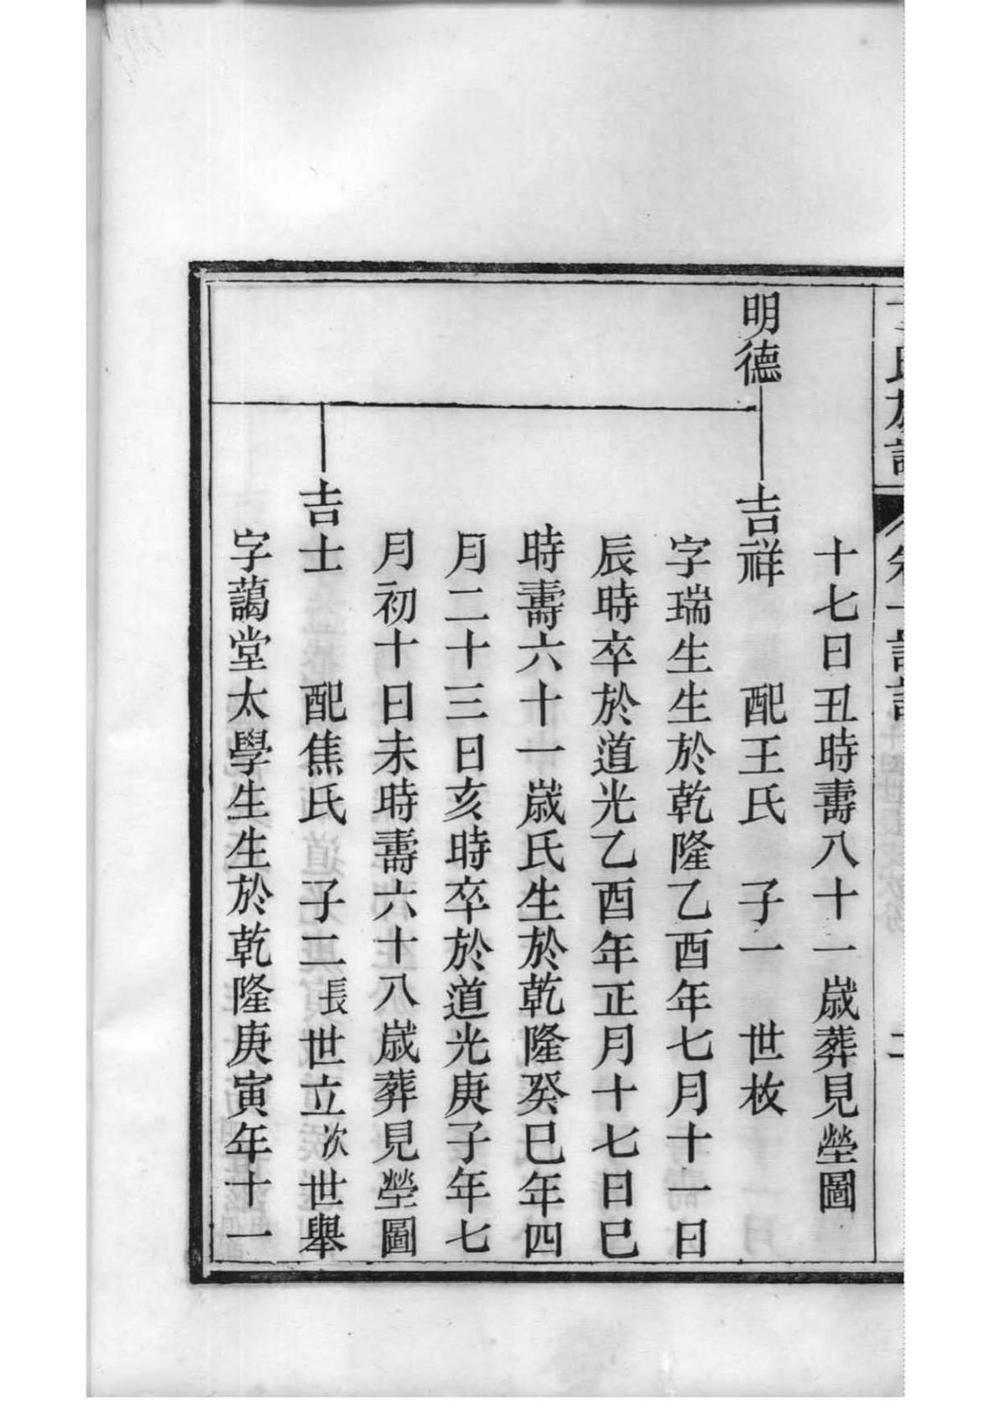 氏族譜
卷一
十七日丑時壽八十一歲葬見塋圖
明德
吉祥 配王氏 子一 世枚
字瑞生生於乾隆乙酉年七月十一日
辰時卒於道光乙酉年正月十七日巳
時壽六十一歲氏生於乾隆癸巳年四
月二十三日亥時卒於道光庚子年七
月初十日未時壽六十八歲葬見塋圖
吉士 配焦氏 子二長世立次世舉
字藹堂太學生生於乾隆庚寅年十一